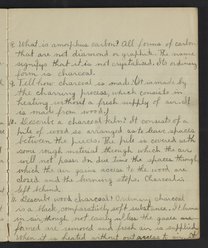 8. What is amorphus carbon? All forms of carbon
that are not diamond or graphite. The name
signifys that it is not crystalised. Its ordinary
form is charcoal.
9. Tell how charcoal is made. It is made by
the charring process, which consists in
heating without a fresh supply of air. It
is made from wood.
10. Describe a charcoal kiln? It consists of a
pile of wood so arranged as to leave spaces
between the pieces. The pile is covered with
some rough material through which the air
will not pass. In due time the spaces through
which the air gains access to the wood are
closed and the burning stops. Charcoal is
left behind.
11. Describe wood charcoal? Ordinary charcoal
is a black, comparatively soft substance. It burns
in air though not easily unless the gases are
formed are removed and fresh air is supplied.
when it heated without access to air it